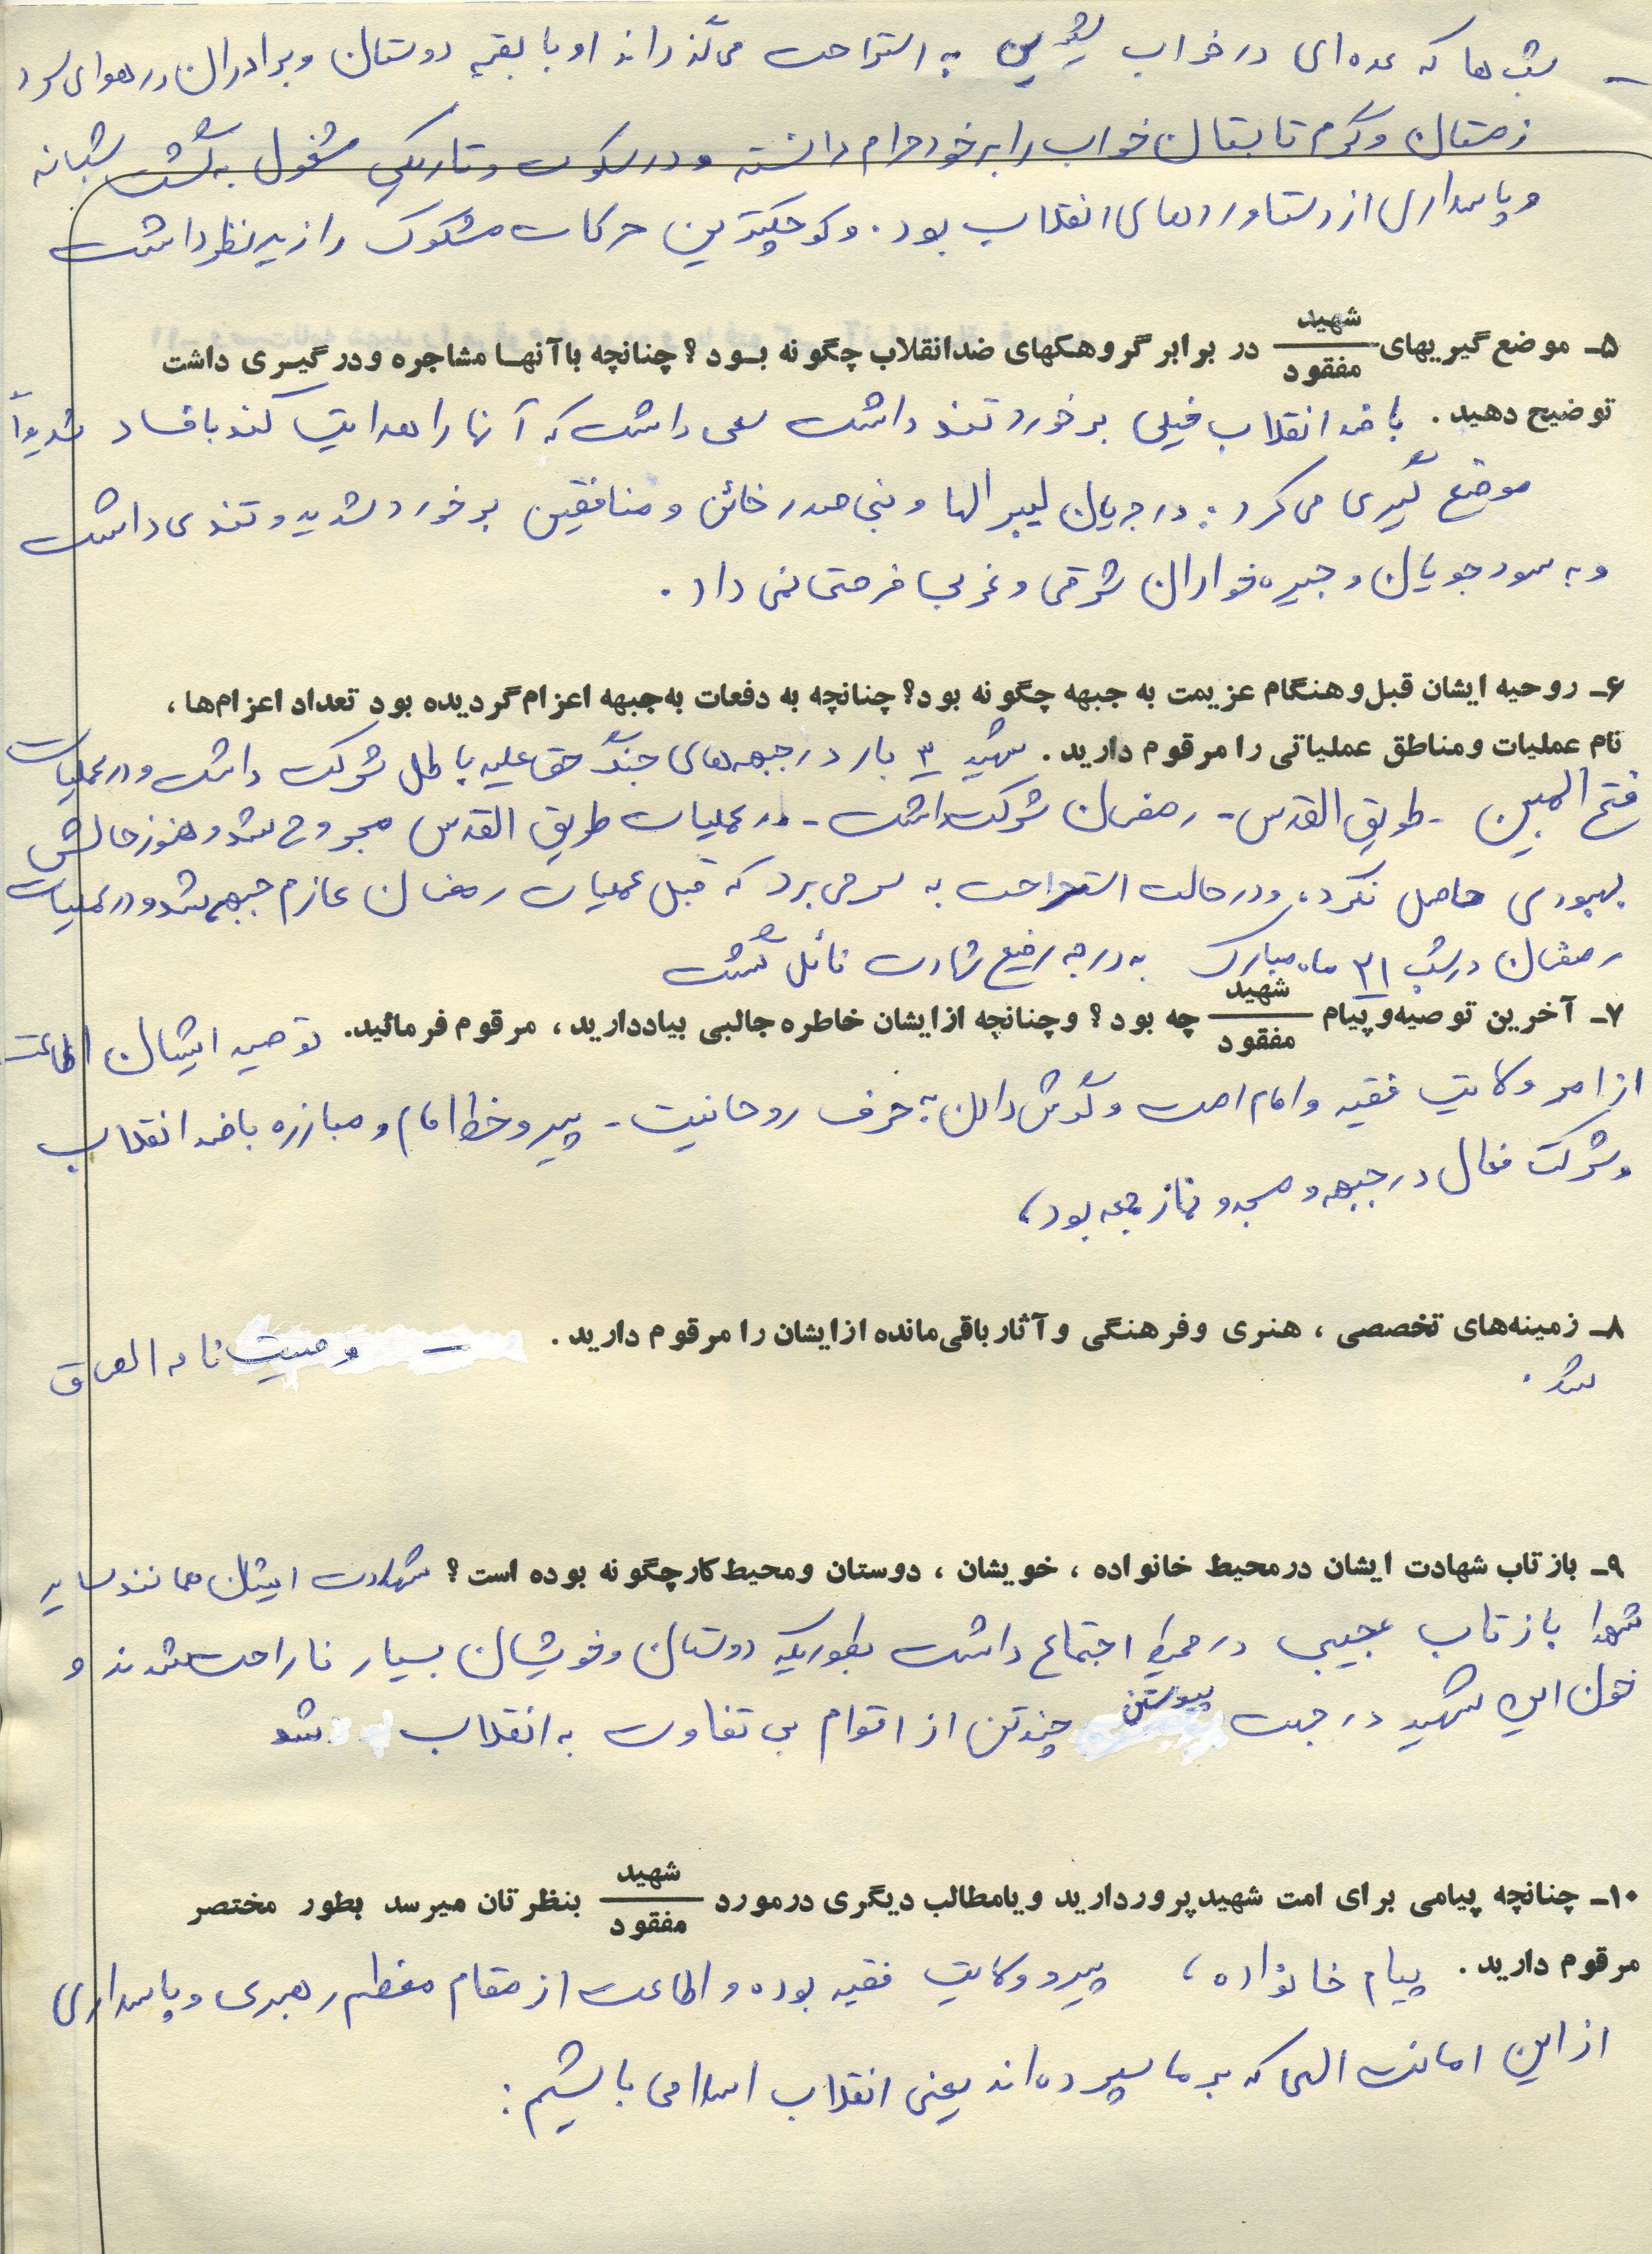 - شب ها که عده ای در خواب شیرین به استراحت می گذراند او با بقیه دوستان و برادران در هوای سرد
زمستان و گرم تابستان خواب را بر خود حرام دانسته و در سکوت و تاریکی مشغول به گشت شبانه
و پاسداری از دستاوردهای انقلاب بود. و کوچکترین حرکات مشکوک را زیر نظر داشت
۵ـ موضع گیریهای شهید / مفقود در برابر گروهکهای ضدانقلاب چگونه بـود ؟ چنانچه باآنهـا مشاجره و درگیـری داشت
توضیح دهید . با ضد انقلاب خیلی برخورد تند داشت سعی داشت که آنها را هدایت کند با فساد شدیداً
موضع گیری می کرد : در جریان لیبرالها و بنی صدر خائن و منافقین برخورد شدید و تندی داشت
و به سودجویان و جیره خواران شرقی و غربی فرصتی نمی داد .
۶ـ روحیه ایشان قبل و هنگام عزیمت به جبهه چگونه بود؟ چنانچه به دفعات به‌جبهه اعزام گردیده بود تعداد اعزام‌ها ،
نام عملیات و مناطق عملیاتی را مرقوم دارید . شهید ۳ بار در جبهه های جنگ حق علیه باطل شرکت داشت و در عملیات
فتح المبین - طریق القدس - رمضان شرکت داشت - در عملیات طریق القدس مجروح شد و هنوز حالش
بهبودی حاصل نکرد، و در حالت استراحت به سر می برد که قبل عملیات رمضان عازم جبهه شد و در عملیات
رمضان در شب ۲۱ ماه مبارک به درجه رفیع شهادت نائل گشت
۷ـ آخرین توصیه و پیام شهید / مفقود چه بود ؟ و چنانچه از ایشان خاطره جالبی بیاددارید ، مرقوم فرمائید. توصیه ایشان اطاعت
از امر ولایت فقیه و امام امت و گوش دادن به حرف روحانیت - پیرو خط امام و مبارزه با ضد انقلاب
و شرکت فعال در جبهه و مسجد و نماز جمعه بود،
۸ـ زمینه‌های تخصصی ، هنری و فرهنگی و آثار باقی‌مانده از ایشان را مرقوم دارید . - وصیت نامه الصاق
شد .
۹ـ بازتاب شهادت ایشان در محیط خانواده ، خویشان ، دوستان و محیط کار چگونه بوده است ؟ شهادت ایشان همانند سایر
شهدا بازتاب عجیبی در محیط اجتماع داشت بطوریکه دوستان و خویشان بسیار ناراحت شدند و
خون این شهید در جهت پیوستن چند تن از اقوام بی تفاوت به انقلاب شد
۱۰ـ چنانچه پیامی برای امت شهیدپرور دارید و یا مطالب دیگری در مورد شهید / مفقود بنظرتان میرسد بطور مختصر
مرقوم دارید . پیام خانواده ، پیرو ولایت فقیه بوده و اطاعت از مقام معظم رهبری و پاسداری
از این امانت الهی که بر ما سپرده اند یعنی انقلاب اسلامی باشیم :